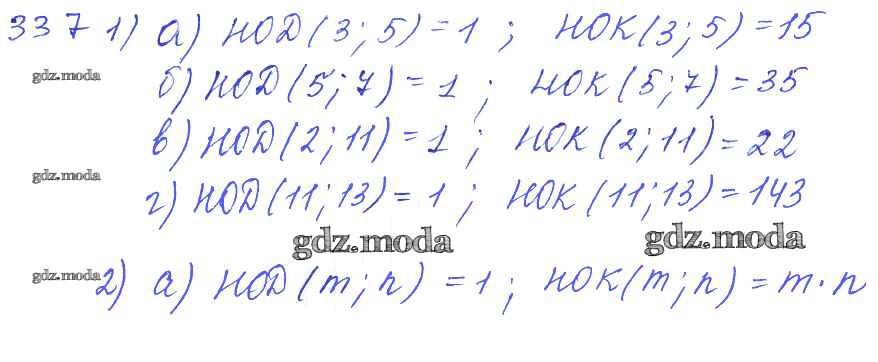 337 1) а) НОД(3; 5) = 1 ; НОК(3; 5) = 15
gdz.moda б) НОД(5; 7) = 1 ; НОК(5; 7) = 35
в) НОД(2; 11) = 1 ; НОК(2; 11) = 22
gdz.moda
г) НОД(11; 13) = 1 ; НОК(11; 13) = 143
gdz.moda gdz.moda
gdz.moda 2) а) НОД(m; n) = 1 ; НОК(m; n) = m · n